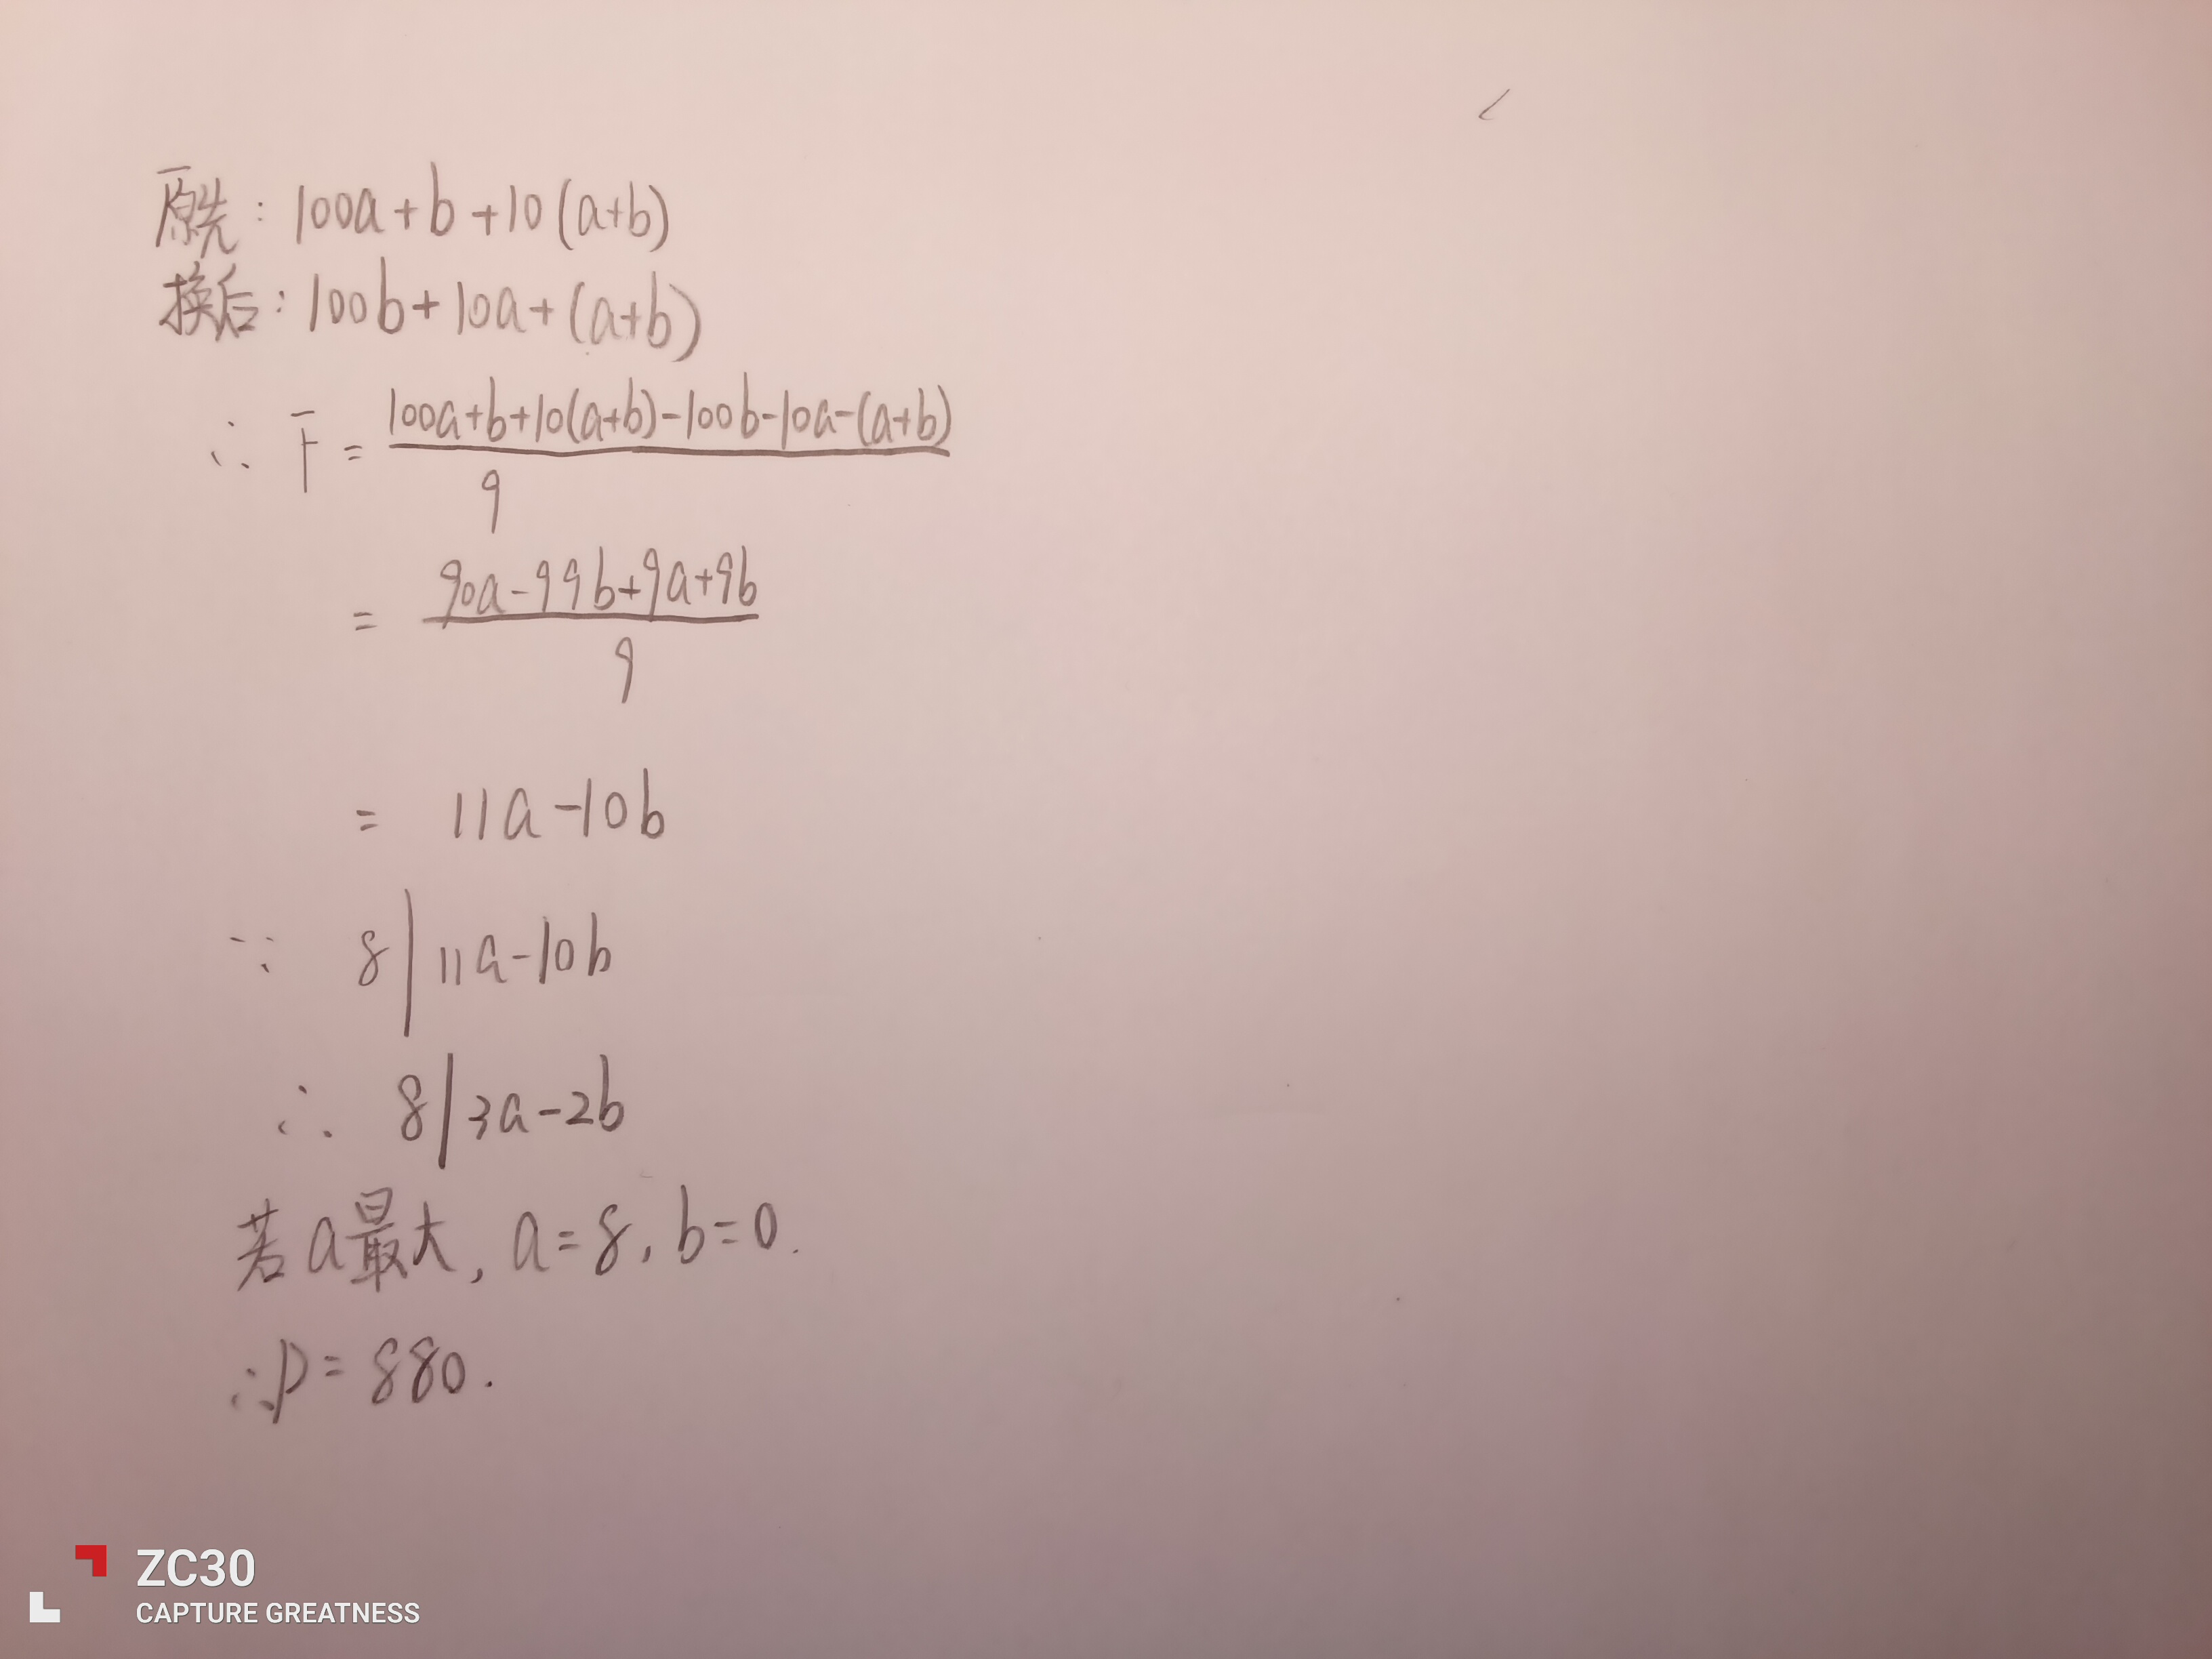 原先：100a+b+10(a+b)
换后：100b+10a+(a+b)
∴ F = \frac{100a+b+10(a+b)-100b-10a-(a+b)}{9}
= \frac{90a-99b+9a+9b}{9}
= 11a-10b
∵ 8|11a-10b
∴ 8|3a-2b
若a最大，a=8，b=0.
∴P=880.
ZC30
CAPTURE GREATNESS